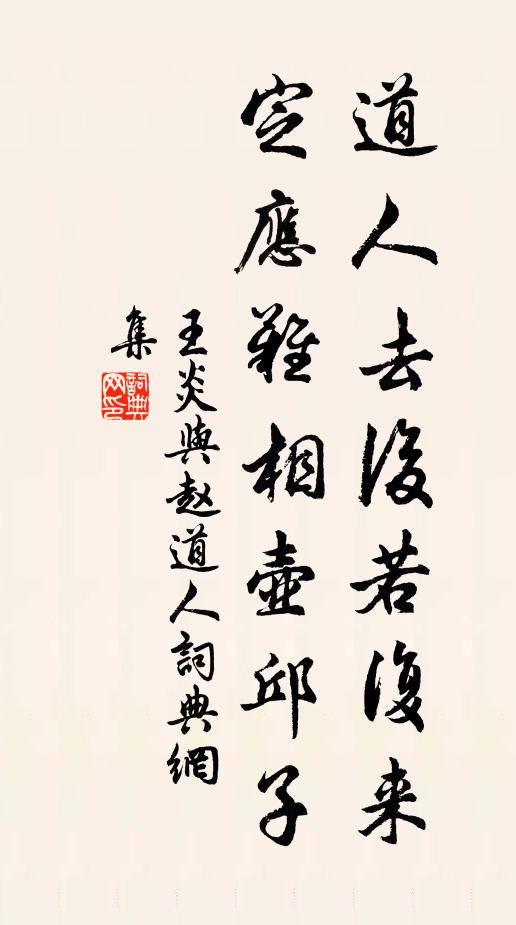 道人去後若復来
定應難相壺邱子
王炎與趙道人詞典網
集
詞典
网印